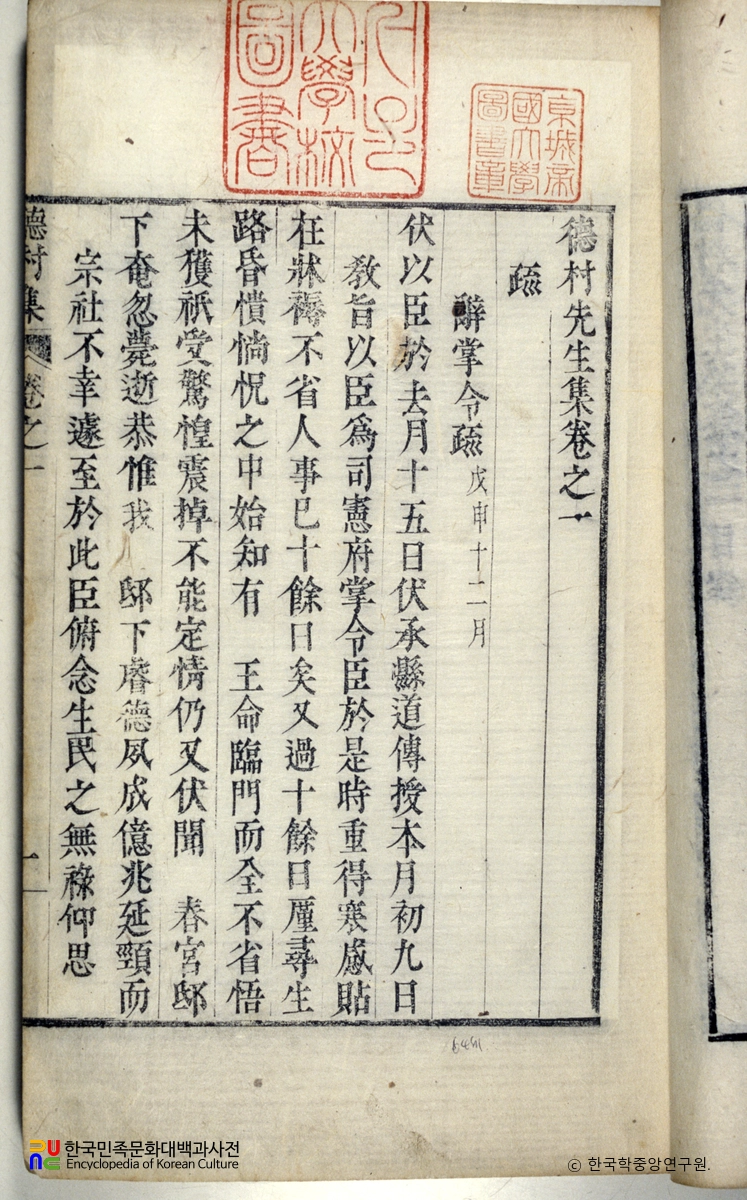 京城帝
國大學
圖書章
大學校
圖書
德村先生集卷之一
疏
辭掌令疏 戊申十二月
伏以臣於去月十五日伏承縣道傳授本月初九日
教旨以臣爲司憲府掌令臣於是時重得寒感貼
在牀褥不省人事已十餘日矣又過十餘日厪尋生
路昏憒惝怳之中始知有 王命臨門而全不省悟
未獲祇受驚惶震掉不能定情仍又伏聞 春宮邸
下奄忽薨逝恭惟我 邸下睿德夙成億兆延頸而
宗社不幸遽至於此臣俯念生民之無祿仰思
德村集 卷之一 一
한국민족문화대백과사전
Encyclopedia of Korean Culture
ⓒ 한국학중앙연구원.